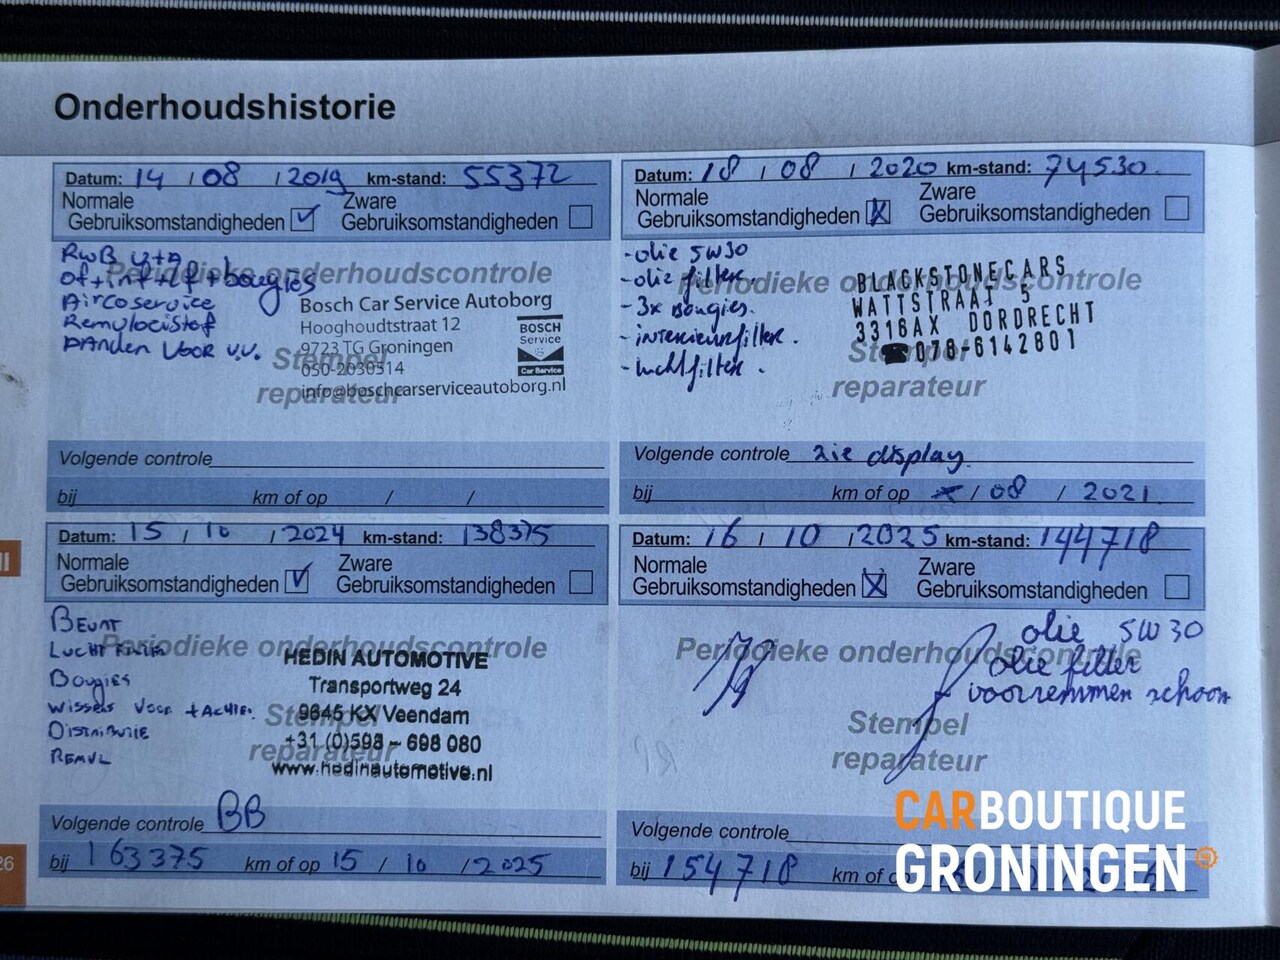 Onderhoudshistorie
Datum: 14 / 08 / 2019 km-stand: 55372
Normale
Gebruiksomstandigheden
Zware
Gebruiksomstandigheden
RWB V+A
of+inf+lf+bougies
Aircoservice
Remvloeistof
banden voor v.v.
Periodieke onderhoudscontrole
Stempel
reparateur
Bosch Car Service Autoborg
Hooghoudtstraat 12
9723 TG Groningen
050-2030314
info@boschcarserviceautoborg.nl
BOSCH
Service
Car Service
Volgende controle
bij km of op / /
Datum: 18 / 08 / 2020 km-stand: 74530
Normale
Gebruiksomstandigheden
Zware
Gebruiksomstandigheden
-olie 5W30
-olie filter.
-3x bougies.
-interieurfilter.
-luchtfilter.
Periodieke onderhoudscontrole
Stempel
reparateur
BLACKSTONECARS
WATTSTRAAT 5
3316AX DORDRECHT
☎078-6142801
Volgende controle zie display
bij km of op / 08 / 2021
Datum: 15 / 10 / 2024 km-stand: 138375
Normale
Gebruiksomstandigheden
Zware
Gebruiksomstandigheden
BEURT
LUCHTFILTER
Bougies
Wissers Voor +ACHTER.
DISTRIBUTIE
REMVL
Periodieke onderhoudscontrole
Stempel
reparateur
HEDIN AUTOMOTIVE
Transportweg 24
9645 KX Veendam
+31 (0)598 - 698 080
www.hedinautomotive.nl
Volgende controle BB
bij 163375 km of op 15 / 10 / 2025
Datum: 16 / 10 / 2025 km-stand: 144718
Normale
Gebruiksomstandigheden
Zware
Gebruiksomstandigheden
olie 5W30
olie filter
voorremmen schoon
Periodieke onderhoudscontrole
Stempel
reparateur
Volgende controle
bij 154718 km of
26
CARBOUTIQUE
GRONINGEN